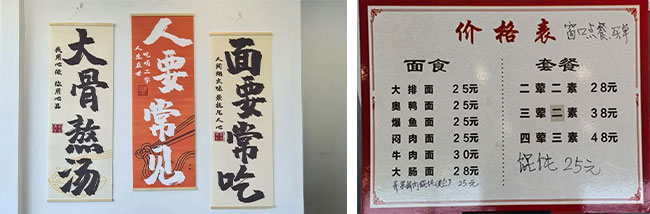 大骨熬汤
我用心做 你用心品
人要常见
吃喝二字
人生在世
面要常吃
人间烟火味 最抚凡人心
价格表 窗口点餐、买单
面食
大排面 25元
奥鸭面 25元
爆鱼面 25元
闷肉面 25元
牛肉面 30元
大肠面 28元
25元
套餐
二荤二素 28元
三荤二素 38元
四荤三素 48元
馄饨25元